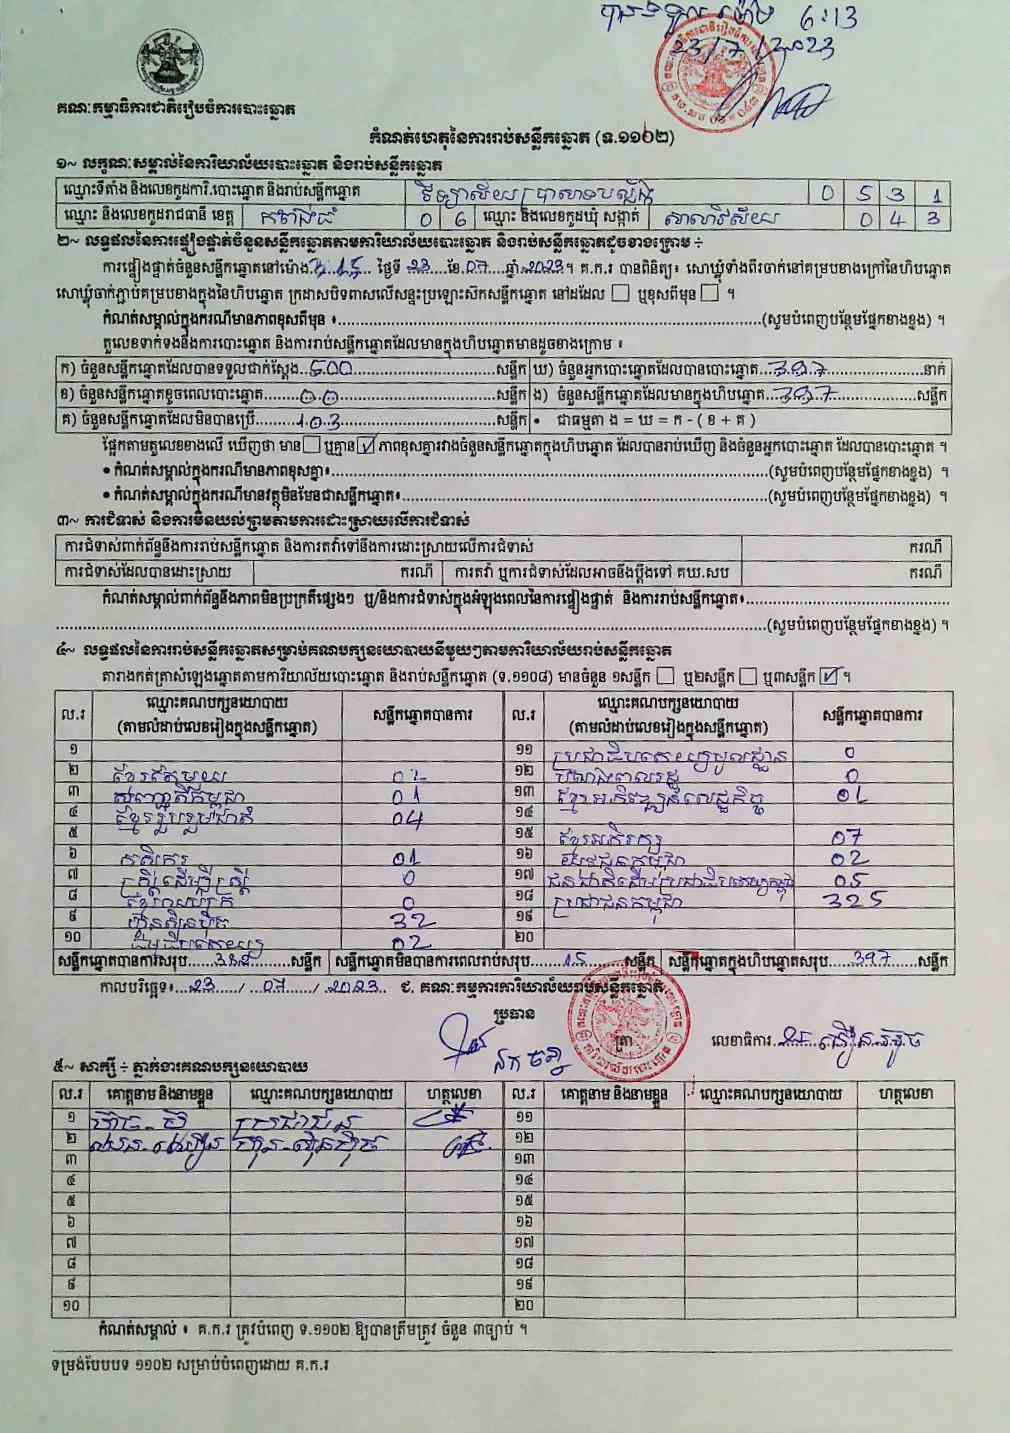 6:13
23/7/2023
គណៈកម្មាធិការជាតិរៀបចំការបោះឆ្នោត
កំណត់ហេតុនៃការរាប់សន្លឹកឆ្នោត (ទ.១១០២)
១~ លក្ខណៈសម្គាល់នៃការិយាល័យបោះឆ្នោត និងរាប់សន្លឹកឆ្នោត
ឈ្មោះទីតាំង និងលេខកូដការិ.បោះឆ្នោត និងរាប់សន្លឹកឆ្នោត វិទ្យាល័យ ប្រាសាទបល្ល័ង្គ 0 5 3 1
ឈ្មោះ និងលេខកូដរាជធានី ខេត្ត កំពង់ធំ 0 6 ឈ្មោះ និងលេខកូដឃុំ សង្កាត់ សាលាវិស័យ 0 4 3
២~ លទ្ធផលនៃការផ្ទៀងផ្ទាត់ចំនួនសន្លឹកឆ្នោតតាមការិយាល័យបោះឆ្នោត និងរាប់សន្លឹកឆ្នោតដូចខាងក្រោម ÷
ការផ្ទៀងផ្ទាត់ចំនួនសន្លឹកឆ្នោតនៅម៉ោង 3:15 ថ្ងៃទី 23 ខែ 07 ឆ្នាំ 2023 ។ គ.ក.រ បានពិនិត្យ៖ សោឃ្លុំទាំងពីរចាក់នៅគម្របខាងក្រៅនៃហិបឆ្នោត
សោឃ្លុំចាក់ភ្ជាប់គម្របខាងក្នុងនៃហិបឆ្នោត ក្រដាសបិទពាសលើសន្ទះប្រឡោះស៊កសន្លឹកឆ្នោត នៅដដែល ☐ ឬខុសពីមុន ☐ ។
កំណត់សម្គាល់ក្នុងករណីមានភាពខុសពីមុន ៖ (សូមបំពេញបន្ថែមផ្នែកខាងខ្នង) ។
តួលេខទាក់ទងនឹងការបោះឆ្នោត និងការរាប់សន្លឹកឆ្នោតដែលមានក្នុងហិបឆ្នោតមានដូចខាងក្រោម ៖
ក) ចំនួនសន្លឹកឆ្នោតដែលបានទទួលជាក់ស្តែង 500 សន្លឹក ឃ) ចំនួនអ្នកបោះឆ្នោតដែលបានបោះឆ្នោត 397 នាក់
ខ) ចំនួនសន្លឹកឆ្នោតខូចពេលបោះឆ្នោត 00 សន្លឹក ង) ចំនួនសន្លឹកឆ្នោតដែលមានក្នុងហិបឆ្នោត 397 សន្លឹក
គ) ចំនួនសន្លឹកឆ្នោតដែលមិនបានប្រើ 103 សន្លឹក • ជាធម្មតា ង = ឃ = ក - ( ខ + គ )
ផ្អែកតាមតួលេខខាងលើ ឃើញថា មាន ☐ ឬគ្មាន ☑ ភាពខុសគ្នារវាងចំនួនសន្លឹកឆ្នោតក្នុងហិបឆ្នោត ដែលបានរាប់ឃើញ និងចំនួនអ្នកបោះឆ្នោត ដែលបានបោះឆ្នោត ។
• កំណត់សម្គាល់ក្នុងករណីមានភាពខុសគ្នា៖ (សូមបំពេញបន្ថែមផ្នែកខាងខ្នង) ។
• កំណត់សម្គាល់ក្នុងករណីមានវត្ថុមិនមែនជាសន្លឹកឆ្នោត៖ (សូមបំពេញបន្ថែមផ្នែកខាងខ្នង) ។
៣~ ការជំទាស់ និងការមិនយល់ព្រមតាមការដោះស្រាយលើការជំទាស់
ការជំទាស់ពាក់ព័ន្ធនឹងការរាប់សន្លឹកឆ្នោត និងការតវ៉ាទៅនឹងការដោះស្រាយលើការជំទាស់ ករណី
ការជំទាស់ដែលបានដោះស្រាយ ករណី ការតវ៉ា ឬការជំទាស់ដែលអាចនឹងប្តឹងទៅ គឃ.សប ករណី
កំណត់សម្គាល់ពាក់ព័ន្ធនឹងភាពមិនប្រក្រតីផ្សេងៗ ឬ/និងការជំទាស់ក្នុងអំឡុងពេលនៃការផ្ទៀងផ្ទាត់ និងការរាប់សន្លឹកឆ្នោត៖
(សូមបំពេញបន្ថែមផ្នែកខាងខ្នង) ។
៤~ លទ្ធផលនៃការរាប់សន្លឹកឆ្នោតសម្រាប់គណបក្សនយោបាយនីមួយៗតាមការិយាល័យរាប់សន្លឹកឆ្នោត
តារាងកត់ត្រាសំឡេងឆ្នោតតាមការិយាល័យបោះឆ្នោត និងរាប់សន្លឹកឆ្នោត (ទ.១១០៨) មានចំនួន ១សន្លឹក ☐ ឬ២សន្លឹក ☐ ឬ៣សន្លឹក ☑ ។
ល.រ ឈ្មោះគណបក្សនយោបាយ (តាមលំដាប់លេខរៀងក្នុងសន្លឹកឆ្នោត) សន្លឹកឆ្នោតបានការ ល.រ ឈ្មោះគណបក្សនយោបាយ (តាមលំដាប់លេខរៀងក្នុងសន្លឹកឆ្នោត) សន្លឹកឆ្នោតបានការ
១ ១១ ប្រជាធិបតេយ្យមូលដ្ឋាន 0
២ 01 ១២ 0
៣ 01 ១៣ ខ្មែរអភិវឌ្ឍន៍សេដ្ឋកិច្ច 01
៤ ខ្មែររួបរួមជាតិ 04 ១៤
៥ ១៥ ខ្មែរអភិរក្ស 07
៦ កសិករ 01 ១៦ យុវជនកម្ពុជា 02
៧ ស្ត្រីដើម្បីស្ត្រី 0 ១៧ 05
៨ 0 ១៨ ប្រជាជនកម្ពុជា 325
៩ ហ្វ៊ុនស៊ិនប៉ិច 32 ១៩
១០ 02 ២០
សន្លឹកឆ្នោតបានការសរុប 382 សន្លឹក សន្លឹកឆ្នោតមិនបានការពេលរាប់សរុប 15 សន្លឹក សន្លឹកឆ្នោតក្នុងហិបឆ្នោតសរុប 397 សន្លឹក
កាលបរិច្ឆេទ៖ 23 / 07 / 2023 ជ. គណៈកម្មការការិយាល័យរាប់សន្លឹកឆ្នោត
ប្រធាន
ត្រា លេខាធិការ
៥~ សាក្សី ÷ ភ្នាក់ងារគណបក្សនយោបាយ
ល.រ គោត្តនាម និងនាមខ្លួន ឈ្មោះគណបក្សនយោបាយ ហត្ថលេខា ល.រ គោត្តនាម និងនាមខ្លួន ឈ្មោះគណបក្សនយោបាយ ហត្ថលេខា
១ ប្រជាជន ១១
២ ហ៊្វុន-ស៊ិនប៉ិច ១២
៣ ១៣
៤ ១៤
៥ ១៥
៦ ១៦
៧ ១៧
៨ ១៨
៩ ១៩
១០ ២០
កំណត់សម្គាល់ ៖ គ.ក.រ ត្រូវបំពេញ ទ.១១០២ ឱ្យបានត្រឹមត្រូវ ចំនួន ៣ច្បាប់ ។
ទម្រង់បែបបទ ១១០២ សម្រាប់បំពេញដោយ គ.ក.រ